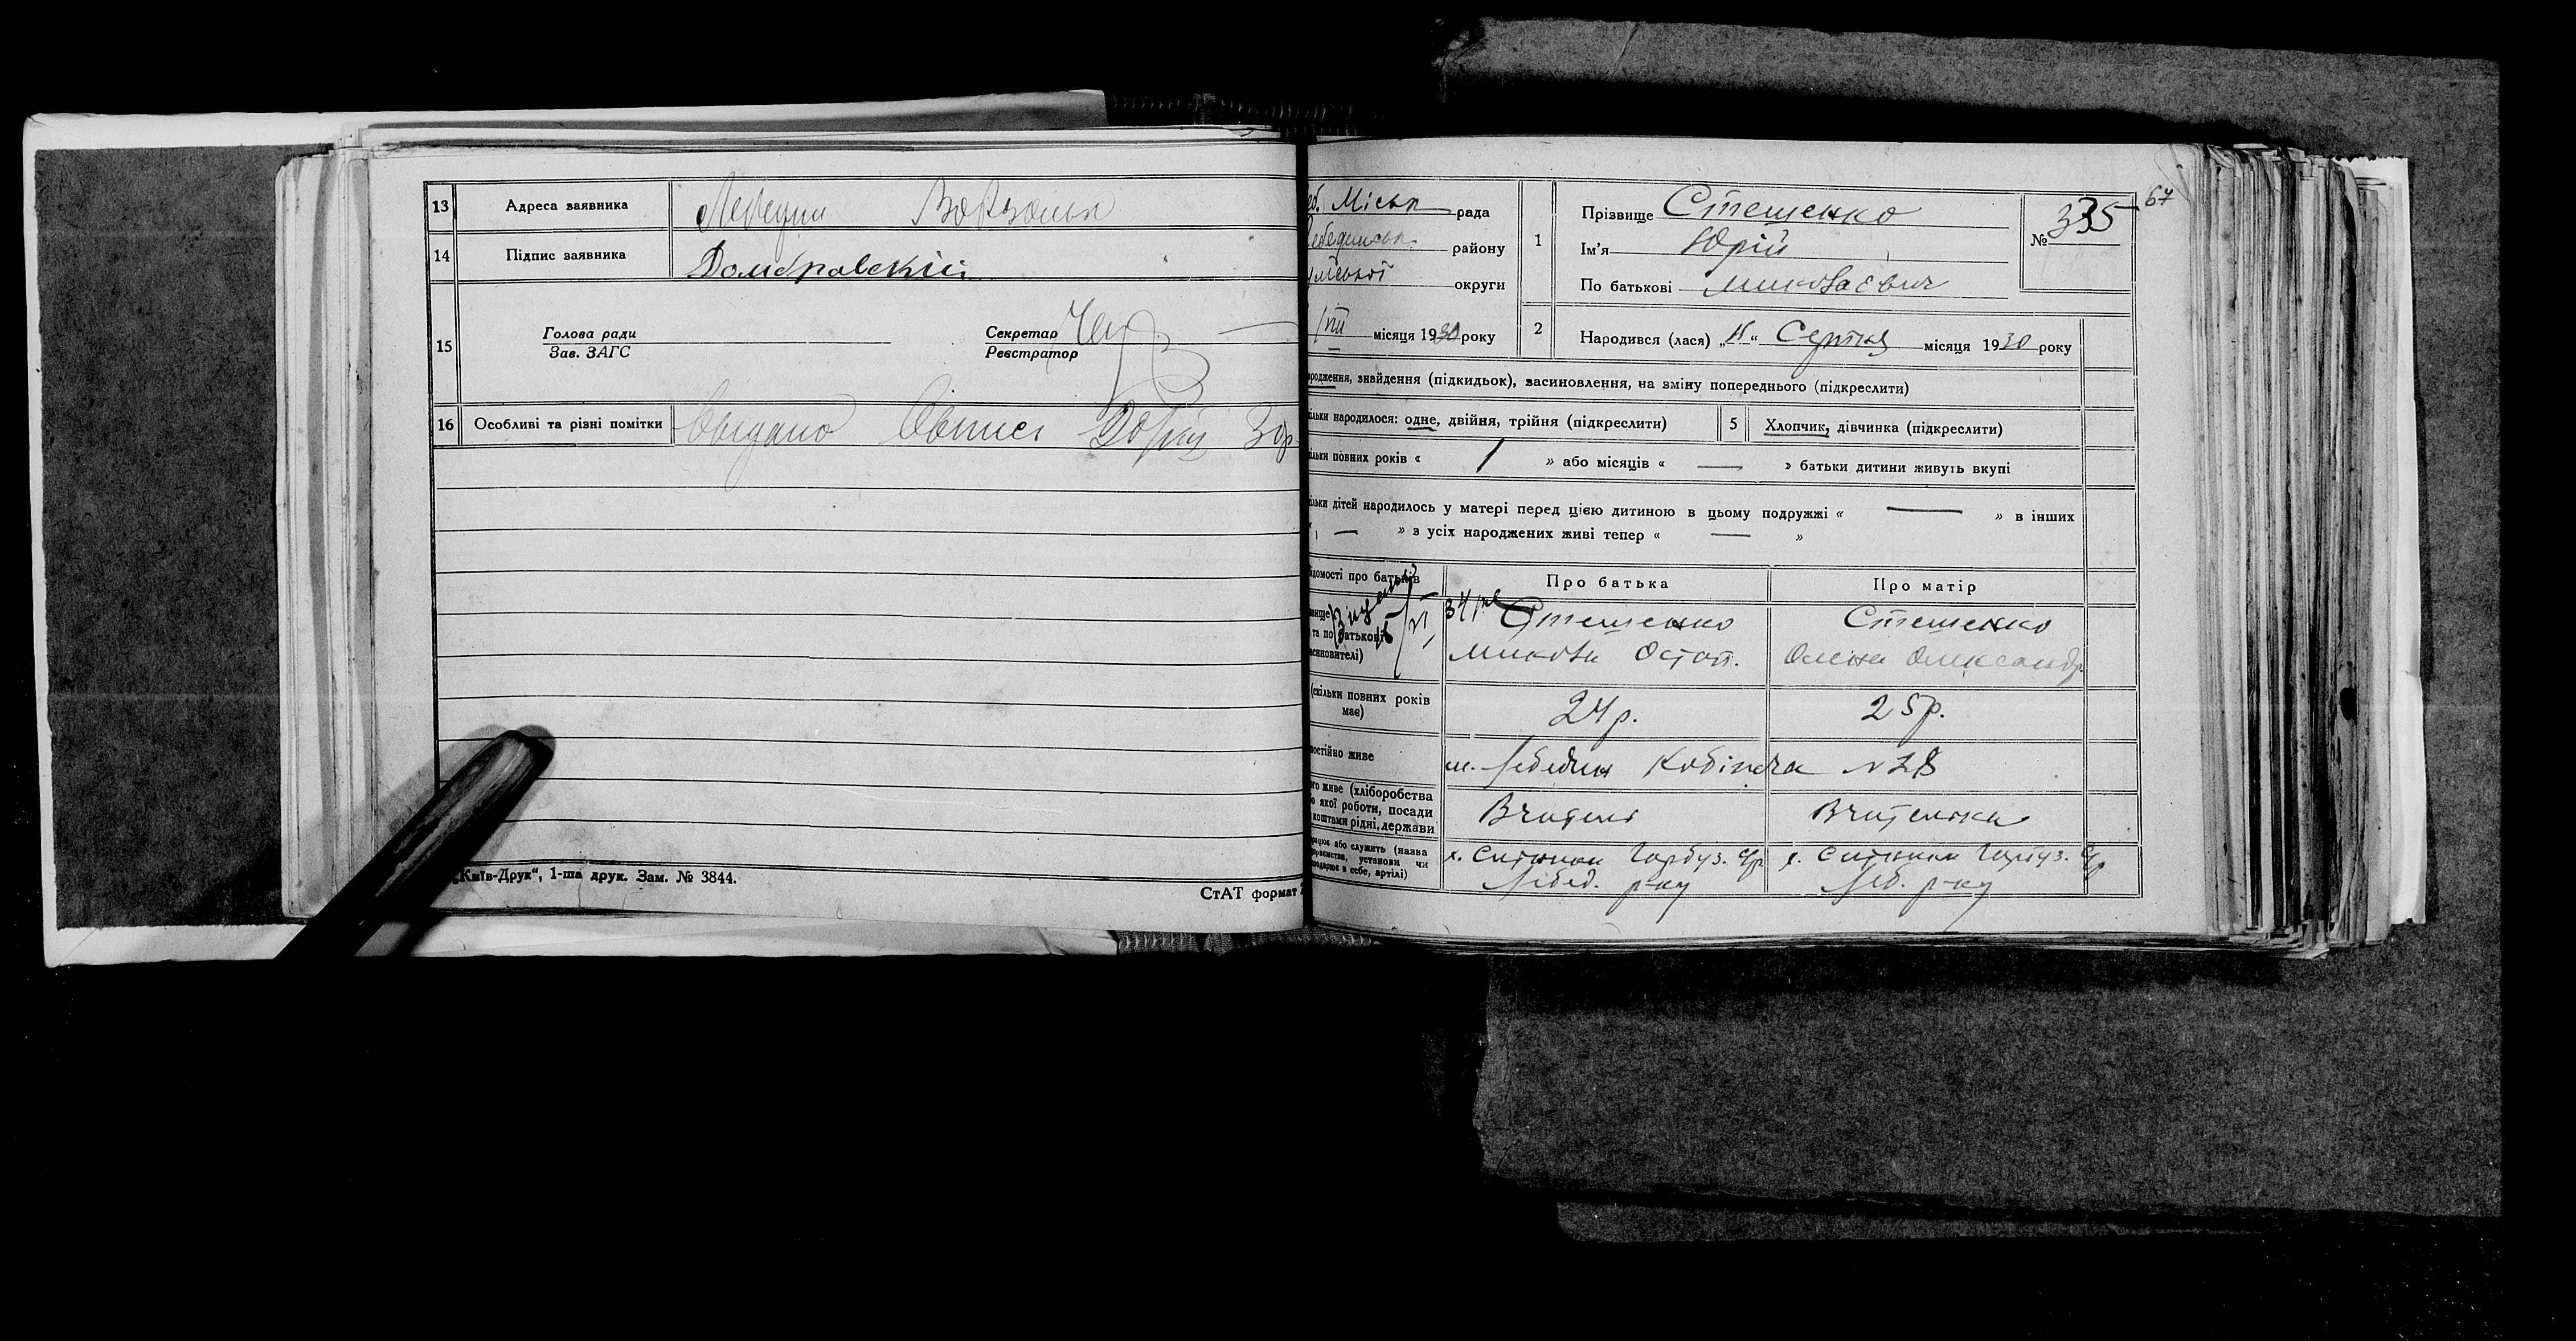 13 Адреса заявника Лебедин Вокзальн
14 Підпис заявника Домбровский
15 Голова ради
Зав. ЗАГС
Секретар
Реєстратор
16 Особливі та різні помітки
„Київ-Друк“, 1-ша друк. Зам. № 3844.
СтАТ формат
67
еб. Міськ рада
Лебединськ. району
умської округи
/VIII місяця 1930 року
1 Прізвище Стешенко
Ім’я Юрій
По батькові Миколаєвич
№ 335
2 Народився (лася) „ “ Серпня місяця 1930 року
ародження, знайдення (підкидьок), васиновлення, на зміну попереднього (підкреслити)
ільки народилося: одне, двійня, трійня (підкреслити) 5 Хлопчик, дівчинка (підкреслити)
ільки повних років « 1 » або місяців « — » батьки дитини живуть вкупі
ільки дітей народилось у матері перед цією дитиною в цьому подружжі « — » в інших
« — » з усіх народжених живі тепер « — »
ідомості про батьків Про батька Про матір
вище
та по батькові
синовителі)
Стешенко Стешенко
Микола Остап. Олена Олександр.
(скільки повних років
має)
24 р. 25 р.
постійно живе м. Лебедин №28
го живе (хліборобства
о якої роботи, посади
коштами рідні, держави
Вчитель Вчителька
рацює або служить (назва
приємства, установи чи
сподарює в себе, артілі)
Лебед. р-ну Леб. р-ну